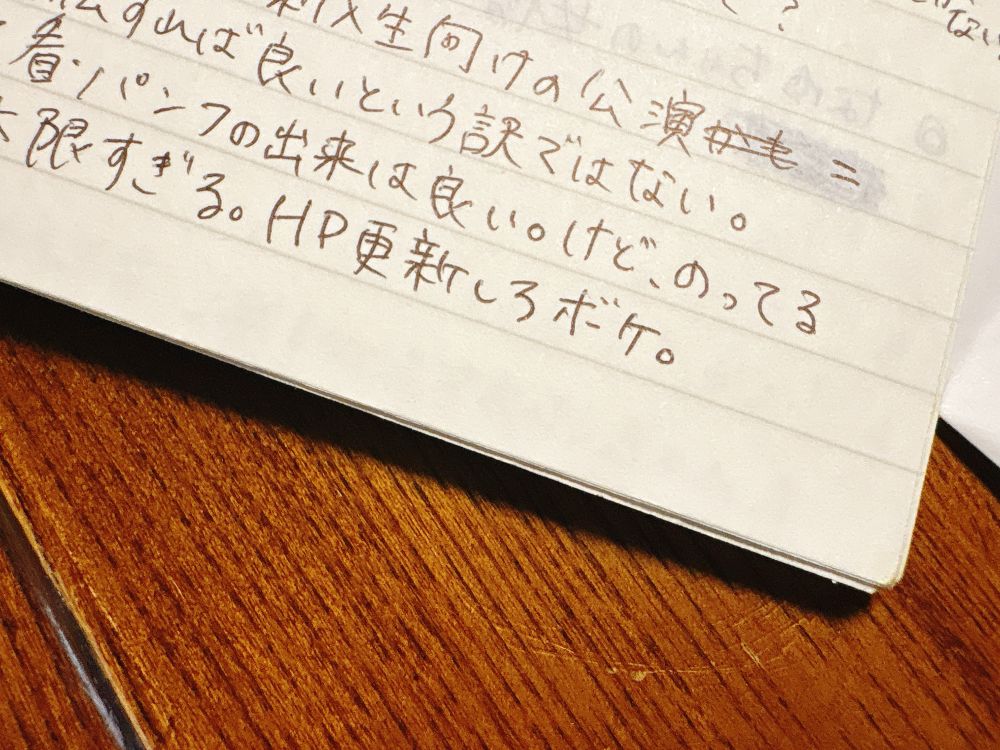 ？
ない
新入生向けの公演かも =
すれば良いという訳ではない。
着・パンフの出来は良い。けど、のってる
限すぎる。HP更新しろボケ。